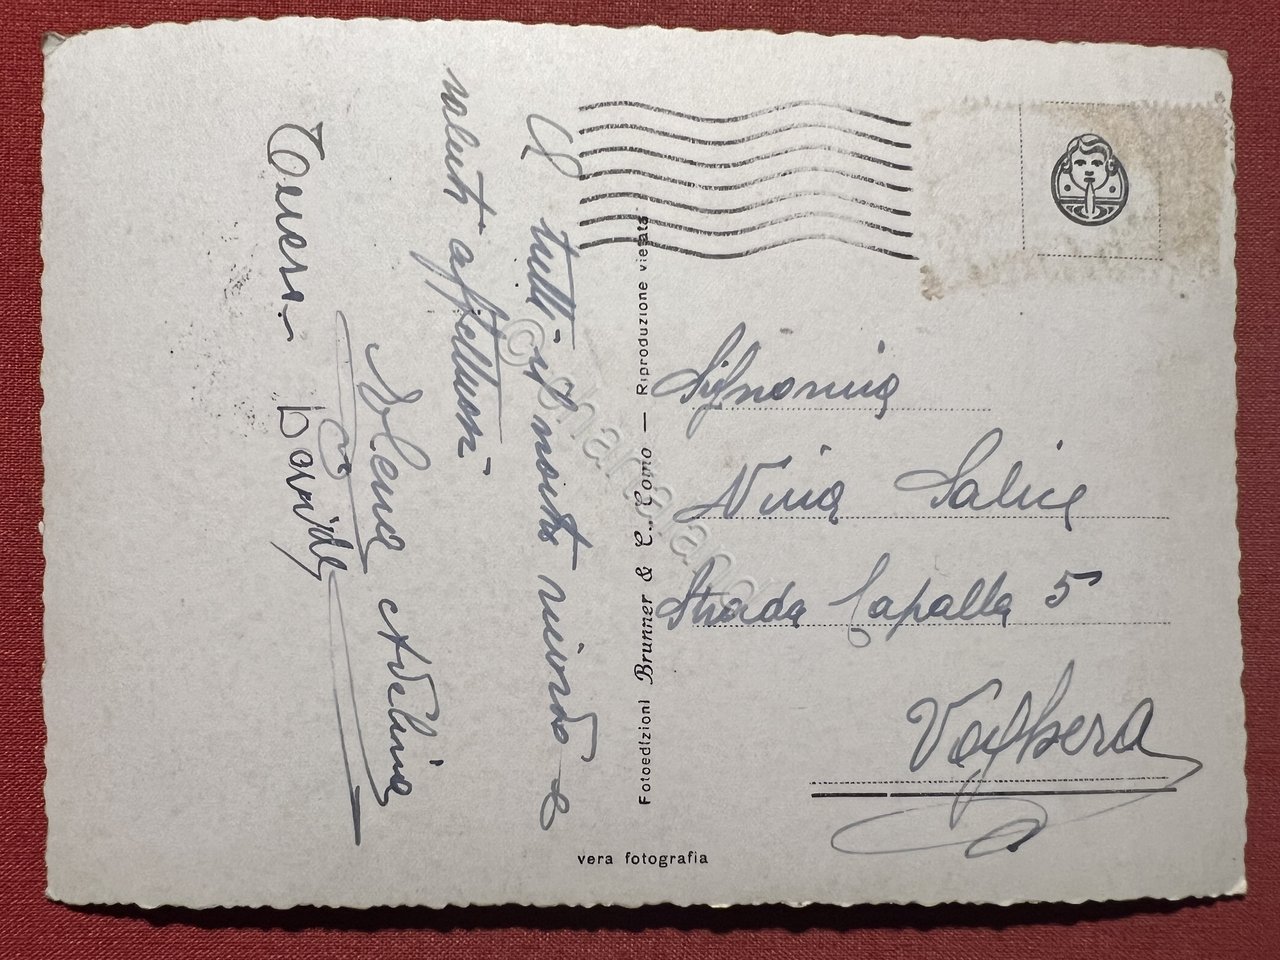 A tutti il nostro ricordo e
saluti affettuosi
Elena Adelina
Teresa Davide
Signorina
Nina Salice
Strada Capalla 5
Voghera
Fotoedizioni Brunner & C., Como — Riproduzione vietata
vera fotografia